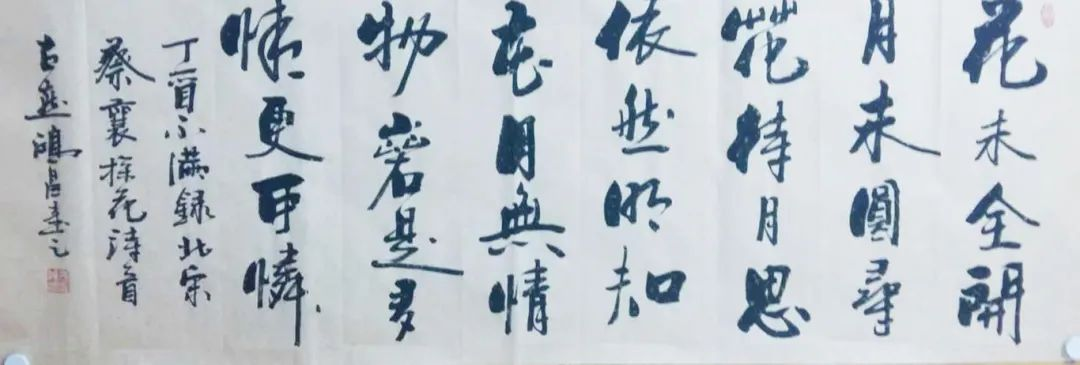 花未全開
月未圓尋
花待月思
依然明知
花月無情
物若是多
情更可憐
丁酉小滿錄北宋
蔡襄探花詩首
古燕鴻昌書之